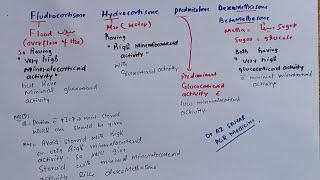 Fludrocortisone
Flood
(overflow of H2O)
having
"very high
mineralocorticoid
activity"
but have
minimal glucocorticoid
activity
Hydrocortisone
H2O (water)
having
"High Mineralocorticoid
activity"
glucocorticoid activity
prednisolone
Predominant
Glucocorticoid activity c̄
low mineralocorticoid
activity
Dexamethasone
Betamethasone
Metha = Sugar
Sugar = glucose
Both having
"very high
glucocorticoid activity
c̄ minimal
mineralocorticoid
activity"
MCQ
Q: Patient c̄ HTN & need steroid
which can should be given
Ans: Avoid steroid with high
or very high mineralocorticoid
activity so will give
Steroid with minimal mineralocorticoid
activity like dexamethasone
Dr
PGR Medicine